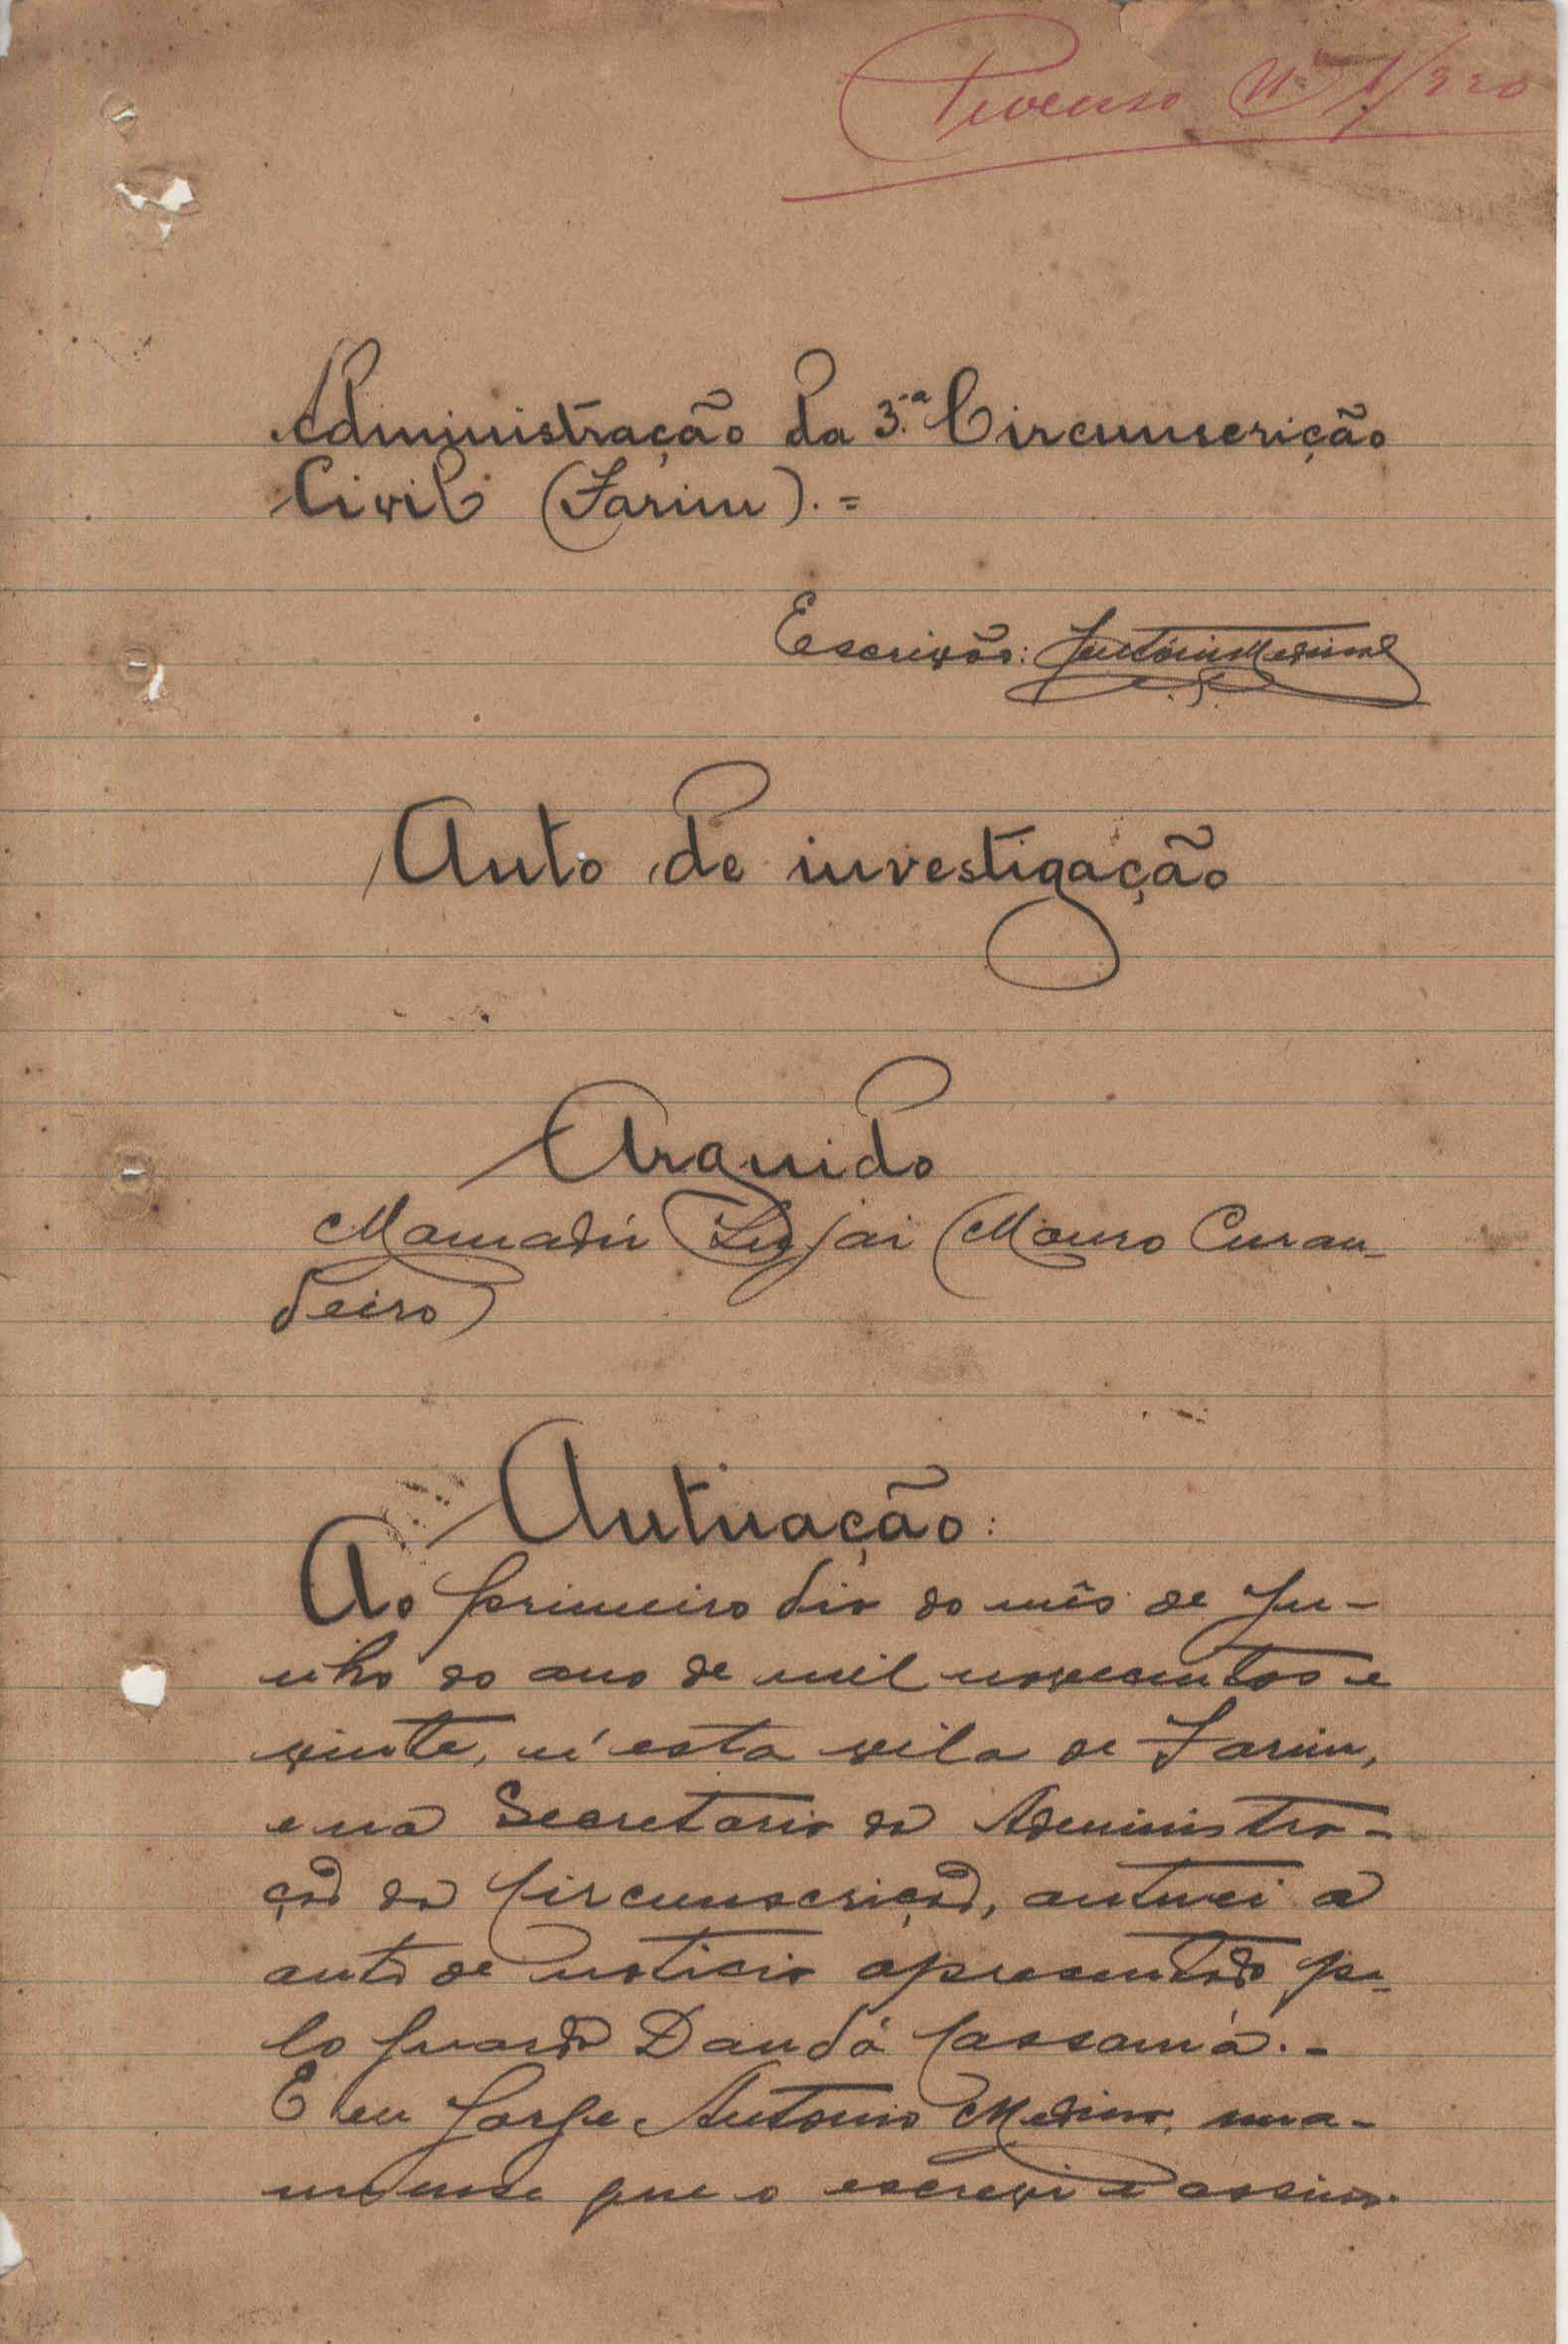 Processo Nº 1/920
Administração da 3.ª Circunscrição
Civil (Farim). =
Escrivão: António Medina
Auto de investigação
Arguido
Mamadú Injai (Mouro Curan-
deiro)
Autuação:
Ao primeiro dia do mês de Ju-
nho do ano de mil novecentos e
vinte, n'esta vila de Farim,
e na Secretaria da Administra-
ção da Circunscrição, autuei o
auto de noticia apresentado pe-
lo guarda Daudá Cassamá. -
E eu Jorge Antonio Medina, ma-
nuense que o escrevi e assino.